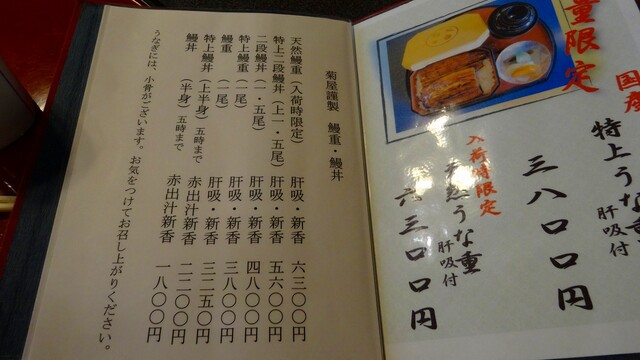 菊屋謹製　鰻重・鰻丼
天然鰻重（入荷時限定）　肝吸・新香　六三〇〇円
特上二段鰻丼（上一・五尾）　肝吸・新香　五六〇〇円
二段鰻丼（一・五尾）　肝吸・新香　四八〇〇円
特上鰻重（一尾）　肝吸・新香　三八〇〇円
鰻重（一尾）　肝吸・新香　三二五〇円
特上鰻丼（上半身）五時まで　赤出汁新香　二二〇〇円
鰻丼（半身）五時まで　赤出汁新香　一八〇〇円
うなぎには、小骨がございます。お気をつけてお召し上がりください。
量限定
国産
特上うな重
肝吸付
三八〇〇円
入荷時限定
天然うな重
肝吸付
六三〇〇円